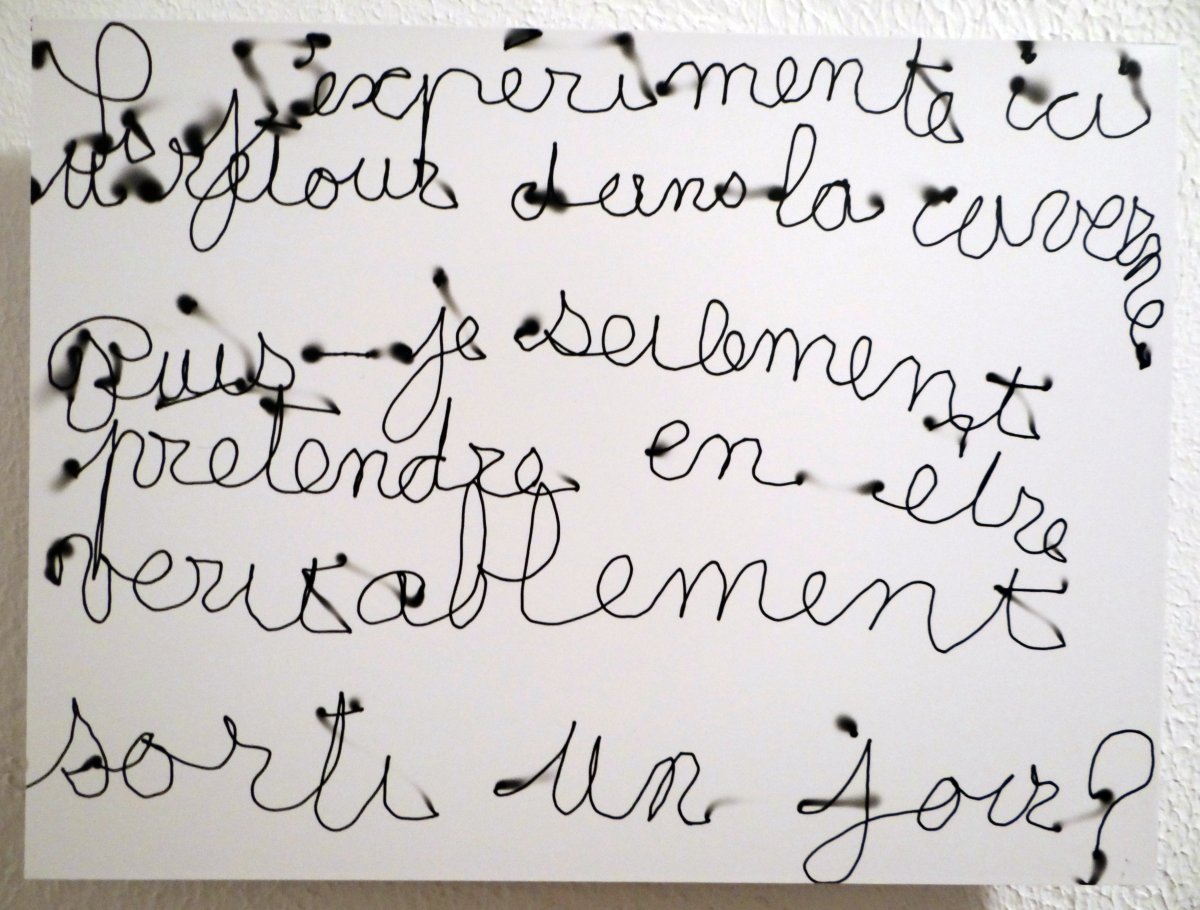 Si j'expérimente ici
un retour dans la caverne
Puis-je seulement
pretendre en être
veritablement
sorti un jour?